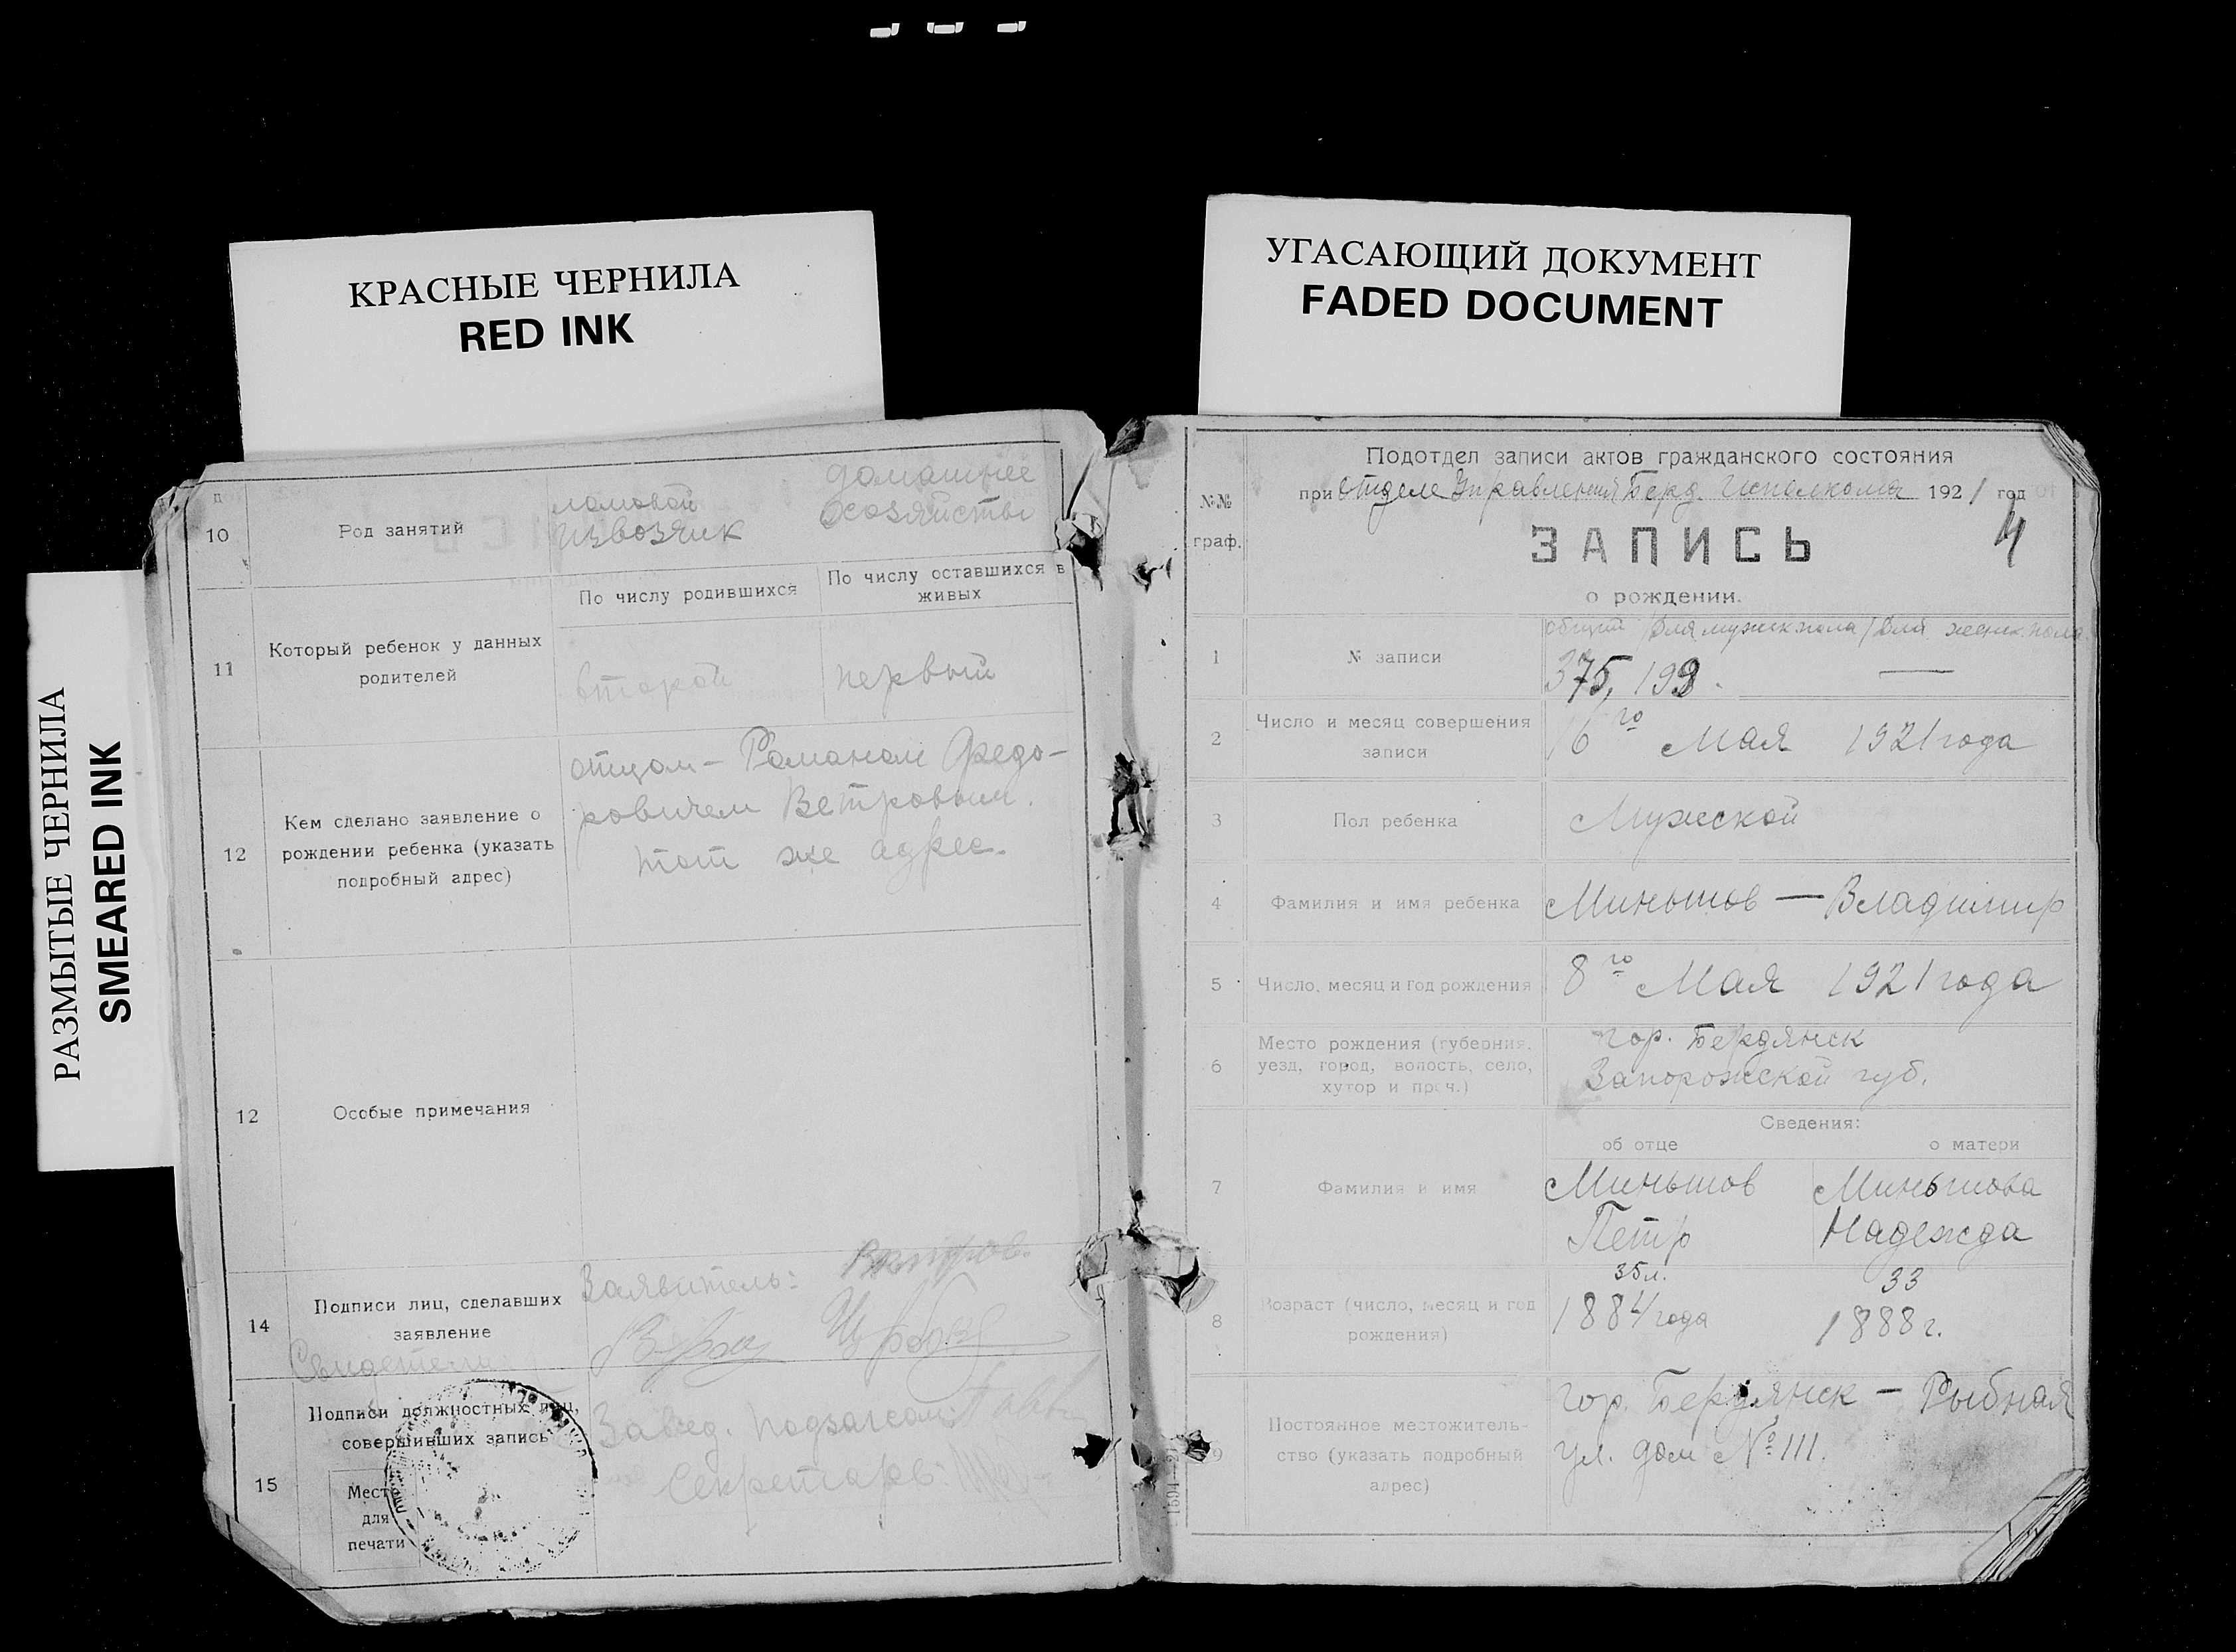 КРАСНЫЕ ЧЕРНИЛА
RED INK
УГАСАЮЩИЙ ДОКУМЕНТ
FADED DOCUMENT
РАЗМЫТЫЕ ЧЕРНИЛА
SMEARED INK
10
Род занятий
ломовой
извозчик
домашнее
хозяйство
11
Который ребенок у данных
родителей
По числу родившихся
По числу оставшихся в
живых
второй
первый
12
Кем сделано заявление о
рождении ребенка (указать
подробный адрес)
отцом - Романом Федо-
ровичем Ветровым.
тот же адрес.
12
Особые примечания
14
Подписи лиц, сделавших
заявление
Свидетели
Заявитель: Ветров.
15
Подписи должностных лиц,
совершивших запись
Место
для
печати
Завед. подзагсом
Секретарь:
№№
граф.
Подотдел записи актов гражданского состояния
при Отделе Управления Берд. Исполкома 1921 год
4
ЗАПИСЬ
о рождении.
1
№ записи
общий / для мужск. пола / для женск. пола
375, 193. —
2
Число и месяц совершения
записи
16го Мая 1921 года
3
Пол ребенка
Мужской
4
Фамилия и имя ребенка
Миньшов — Владимир
5
Число, месяц и год рождения
8го Мая 1921 года
6
Место рождения (губерния,
уезд, город, волость, село,
хутор и проч.)
гор. Бердянск
Запорожской губ.
Сведения:
об отце
о матери
7
Фамилия и имя
Миньшов
Петр
Миньшова
Надежда
8
Возраст (число, месяц и год
рождения)
35 л.
1884 года
33
1888 г.
9
Постоянное местожитель-
ство (указать подробный
адрес)
гор. Бердянск - Рыбная
ул. дом № 111.